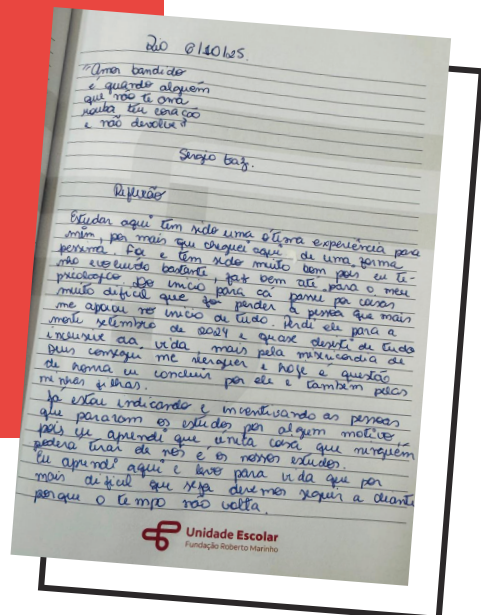 Rio 6/10/25.
"Amor bandido
é quando alguém
que não te ama
rouba teu coração
e não devolve"
Sergio Vaz.
Reflexão
Estudar aqui tem sido uma ótima experiência para
mim, por mais que cheguei aqui de uma forma
péssima. Foi e tem sido muito bom pois eu te-
nho evoluido bastante, faz bem até para o meu
psicologico. Do inicio para cá passei por coisas
muito dificil que foi perder a pessoa que mais
me apoiou no inicio de tudo. Perdi ele para a
morte setembro de 2024 e quase desisti de tudo
inclusive da vida mais pela misericordia de
Deus consegui me reerguer e hoje é questão
de honra eu concluir por ele e também pelas
minhas filhas.
Ja estou indicando e incentivando as pessoas
que pararam os estudos por algum motivo,
pois eu aprendi que unica coisa que ninguém
podera tirar de nós e os nossos estudos.
Eu aprendi aqui e levo para vida que por
mais dificil que seja devemos seguir a diante
porque o tempo não volta.
Unidade Escolar
Fundação Roberto Marinho